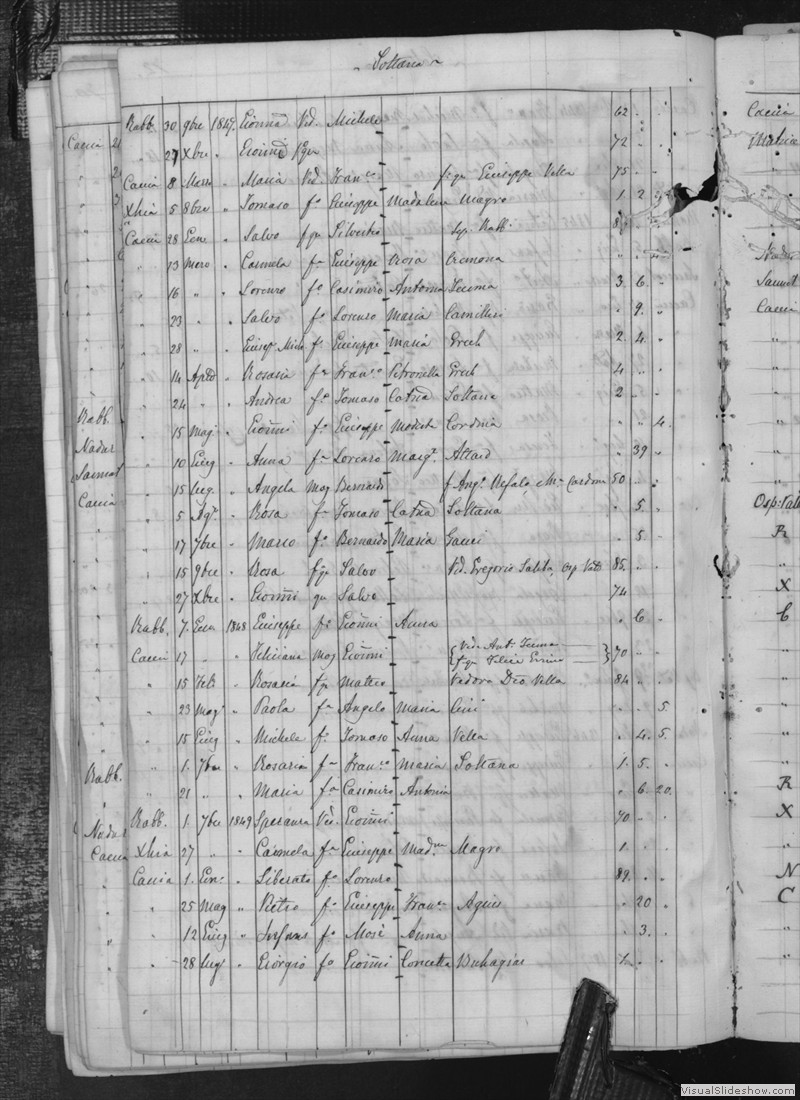 Soltana
Rabb. 30 9bre 1847. Giovanna Vid. Michele 62 .
Caccia 27 Xbre . Giovanni 72 .
Caccia 8 Marzo . Maria Vid. Franco fqu Giuseppe Vella 75 .
Xhia 5 8bre . Tomaso fo Giuseppe Madalena Magro 1. 2
Caccia 28 Gen . Salvo fqu Silvestro Sep. Rabb.
. 13 Marzo . Carmela fa Giuseppe Rosa Cremona
. 16 . . Lorenzo fo Casimiro Antonia Tcuma 3. 6. .
. 23 . . Salvo fo Lorenzo Maria Camilleri . 9. .
. 28 . . Giusep. Michele fo Giuseppe Maria Grech 2. 4. .
. 14 Aprile . Rosaria fa Franco Petronilla Grech 4 . .
. 24 . . Andrea fo Tomaso Catna Soltana 2 . .
Rabb. . 15 Mag . Giovni fo Giuseppe Modesta Cordina . . 4.
Nadur . 10 Giug . Anna fa Lorenzo Margta Attard . 39 .
Sannat
Caccia . 15 Lug. . Angela Mog Bernardo f. Ango Refalo, e Ma Cardona 50 . .
. 5 Agto . Rosa fa Tomaso Catna Soltana . 5. .
. 17 7bre . Marco fo Bernardo Maria Gauci . 5 .
. 15 9bre . Rosa fqu Salvo Vid. Gregorio Saliba, Osp. 85. . .
. 27 Xbre . Giovni qu Salvo 74 .
Rabb. 7 Gen 1848 Giuseppe fo Giovni Anna . 6. .
Caccia 17 . . Feliciana Mog Giovni Vid. Anto Tcuma fqu Felice 70 . .
. 15 Feb . Rosaria fqu Matteo Vedova Dco Vella 84 . .
. 23 Mag . Paola fa Angelo Maria Cini . . 5
. 15 Giug . Michele fo Tomaso Anna Vella . 4. 5.
Rabb. . 1. 7bre . Rosaria fa Franco Maria Soltana 1. 5. .
. 21 . . Maria fa Casimiro Antonia . 6. 20.
Nadur Rabb. 1. 7bre 1849 Speranza Vid. Giovni 70 . .
Caccia Xhia 27 . . Carmela fa Giuseppe Madna Magro 1. . .
Caccia 1. Gen . Liberato fo Lorenzo 89. . .
. 25 Mag . Pietro fo Giuseppe Franca Agius . 20 .
. 12 Giug . Infans fo Mosè Anna . 3. .
. 28 Lug . Giorgio fo Giovni Concetta Buhagiar
Caccia
Nadur
Sannat
Caccia
R
X
C
R
X
N
C
VisualSlideshow.com